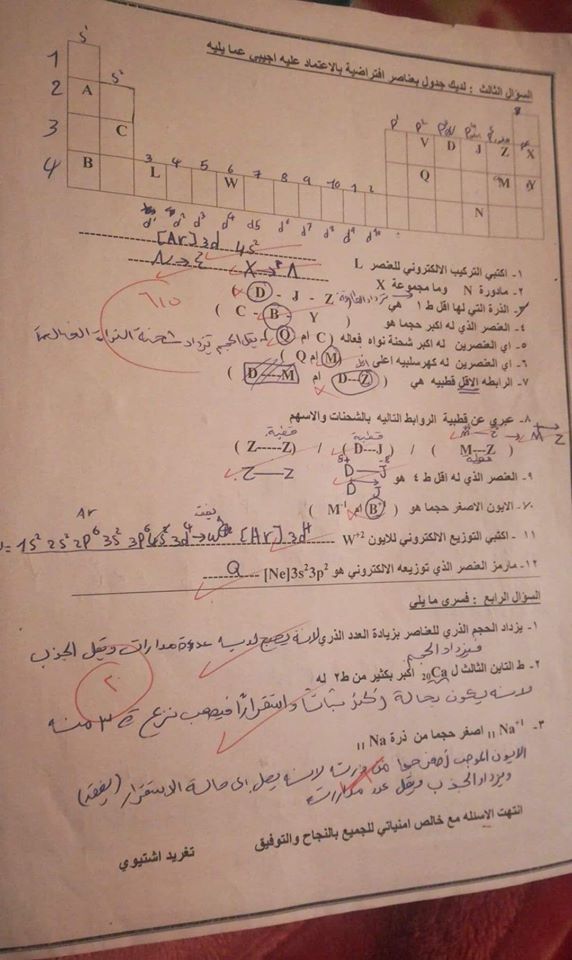 السؤال الثالث : لديك جدول بعناصر افتراضية بالاعتماد عليه اجيبي عما يليه
S¹
S²
1
2
3
4
A
C
B
L
W
V
D
J
Z
X
Q
M
Y
N
3 4 5 6 7 8 9 10 1 2
d¹ d² d³ d⁴ d5 d⁶ d⁷ d⁸ d⁹ d¹⁰
[Ar] 3d 4s²
١- اكتبي التركيب الالكتروني للعنصر L
٢- مادورة N وما مجموعة X
٣- الذرة التي لها اقل ط١ هي ( D - J - Z )
٤- العنصر الذي له اكبر حجما هو ( C - B - Y )
٥- اي العنصرين له اكبر شحنة نواه فعاله ( C ام Q ) يقل الحجم تزداد شحنة النواة الفعالة
٦- اي العنصرين له كهرسلبيه اعلى ( M ام Q )
٧- الرابطه الاقل قطبيه هي ( D---Z ام D----M )
٦١٥
٨- عبري عن قطبية الروابط التاليه بالشحنات والاسهم
( M---Z ) / ( D---J ) / ( Z-----Z )
قطبية
Z — Z
D — J
٩- العنصر الذي له اقل ط٤ هو
١٠- الايون الاصغر حجما هو ( B⁺¹ ام M⁻¹ )
١١- اكتبي التوزيع الالكتروني للايون W⁺²
1S² 2S² 2P⁶ 3S² 3P⁶ 4S² 3d⁴ → [Ar] 3d⁴
Ar
يفقد
١٢- مارمز العنصر الذي توزيعه الالكتروني هو [Ne]3s²3p² Q
السؤال الرابع : فسري ما يلي
١- يزداد الحجم الذري للعناصر بزيادة العدد الذري لانه يصبح لديه عدة مدارات ويقل الجذب
فيزداد الحجم
٢- ط التاين الثالث ل ₂₀Ca اكبر بكثير من ط٢ له
٢
لانه يكون بحالة اكثر ثباتا واستقرارا فيصعب نزع e منه
٣- ₁₁Na⁺¹ اصغر حجما من ذرة ₁₁Na
الايون الموجب اصغر حجما من ذرته لانه يصل الى حالة الاستقرار (يفقد)
ويزداد الجذب ويقل عدد مداراته
انتهت الاسئله مع خالص امنياتي للجميع بالنجاح والتوفيق
تغريد اشتيوي